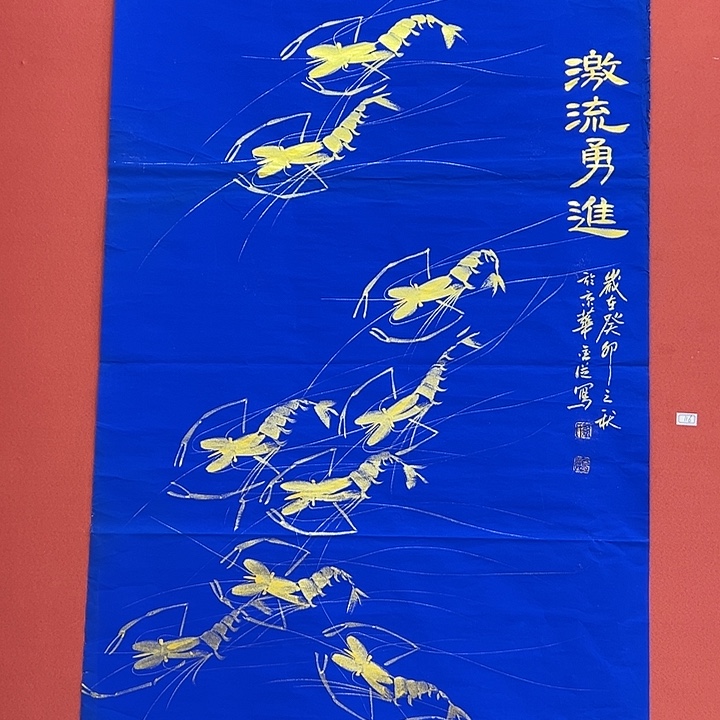 激流勇進
歲在癸卯之秋
於京華
寫